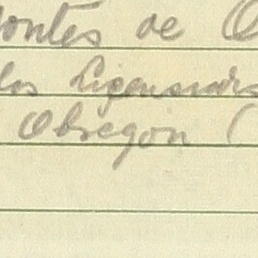 ontes de O
los Licenciados
Obregon (